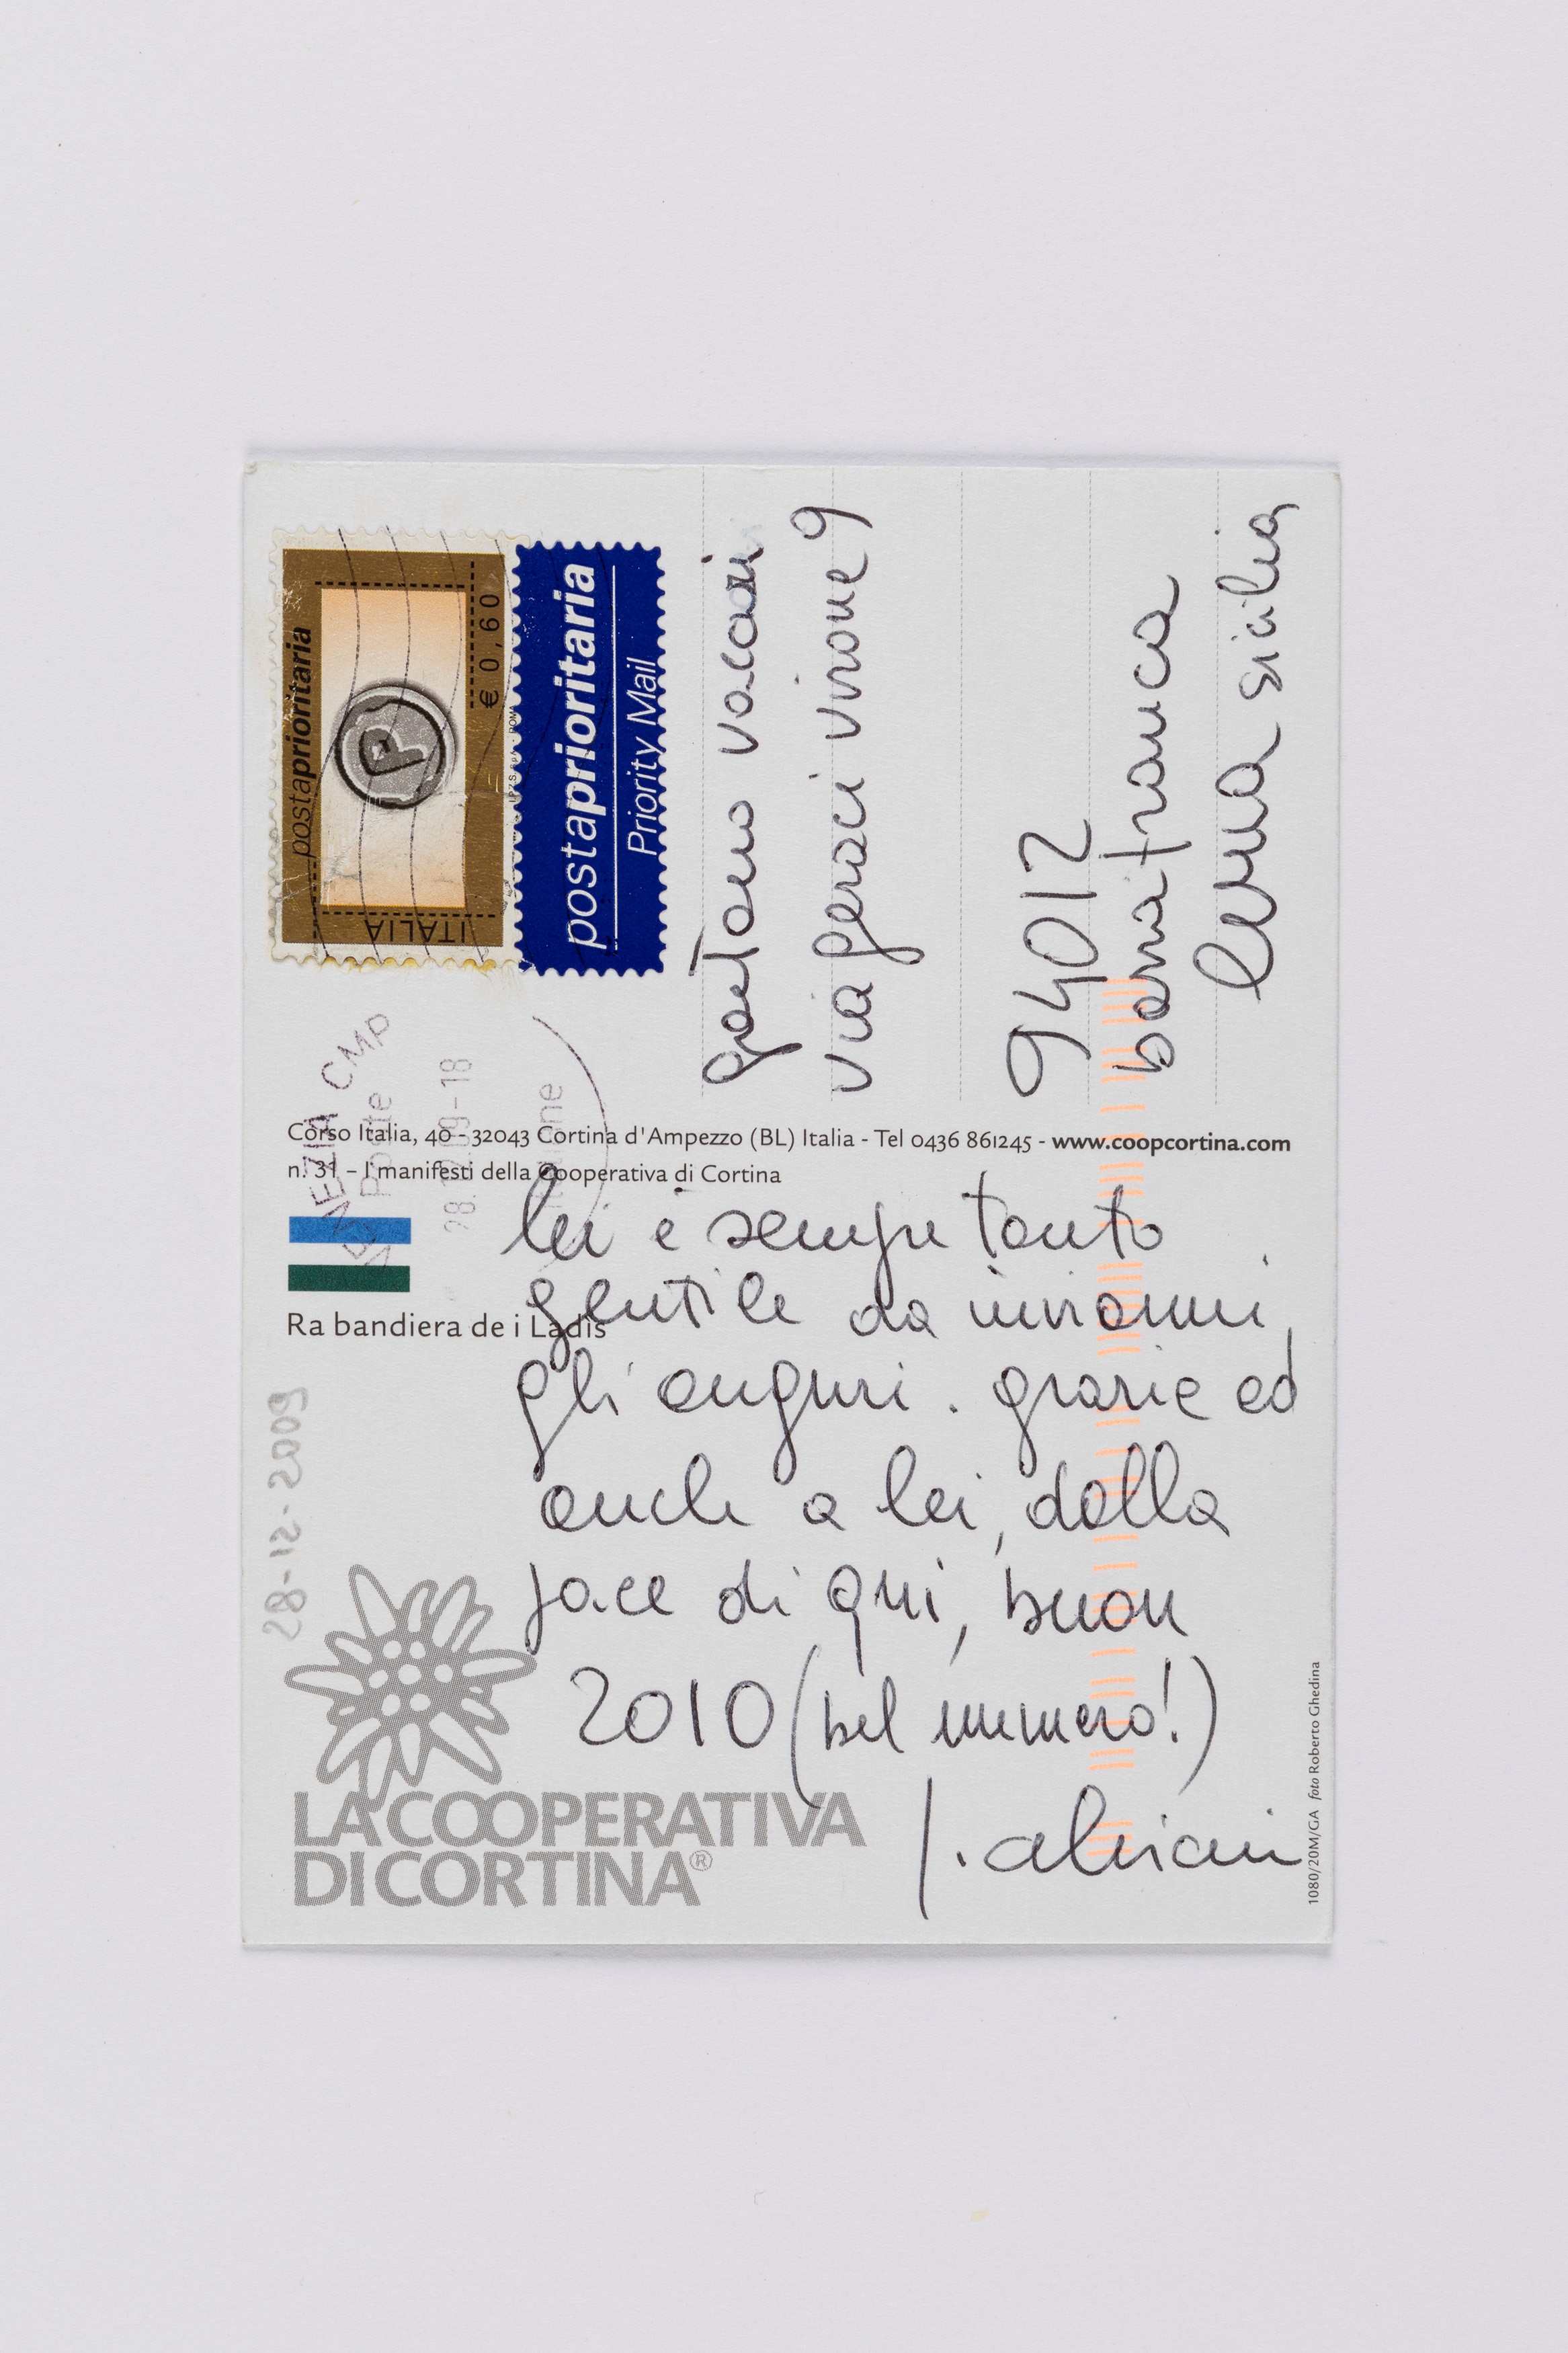 postaprioritaria
€ 0,60
ITALIA
postaprioritaria
Priority Mail
gaetano vaccari
via geraci virone 9
94012
barrafranca
enna sicilia
VENEZIA CMP
Poste
28.12.09-18
Italiane
Corso Italia, 40 - 32043 Cortina d'Ampezzo (BL) Italia - Tel 0436 861245 - www.coopcortina.com
n. 31 – I manifesti della Cooperativa di Cortina
Ra bandiera de i Ladis
28-12-2009
lei è sempre tanto
gentile da inviarmi
gli auguri. grazie ed
anche a lei, dalla
pace di qui, buon
2010 (bel numero!)
LA COOPERATIVA
DI CORTINA®
1080/20M/GA foto Roberto Ghedina